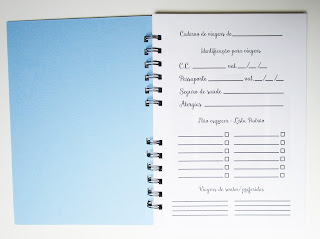 Caderno de viagens de
Identificação para viagens
C.C. val. / /
Passaporte val. / /
Seguro de saúde
Alergias
Não esquecer - Lista Básica
Viagens de sonho/preferidas